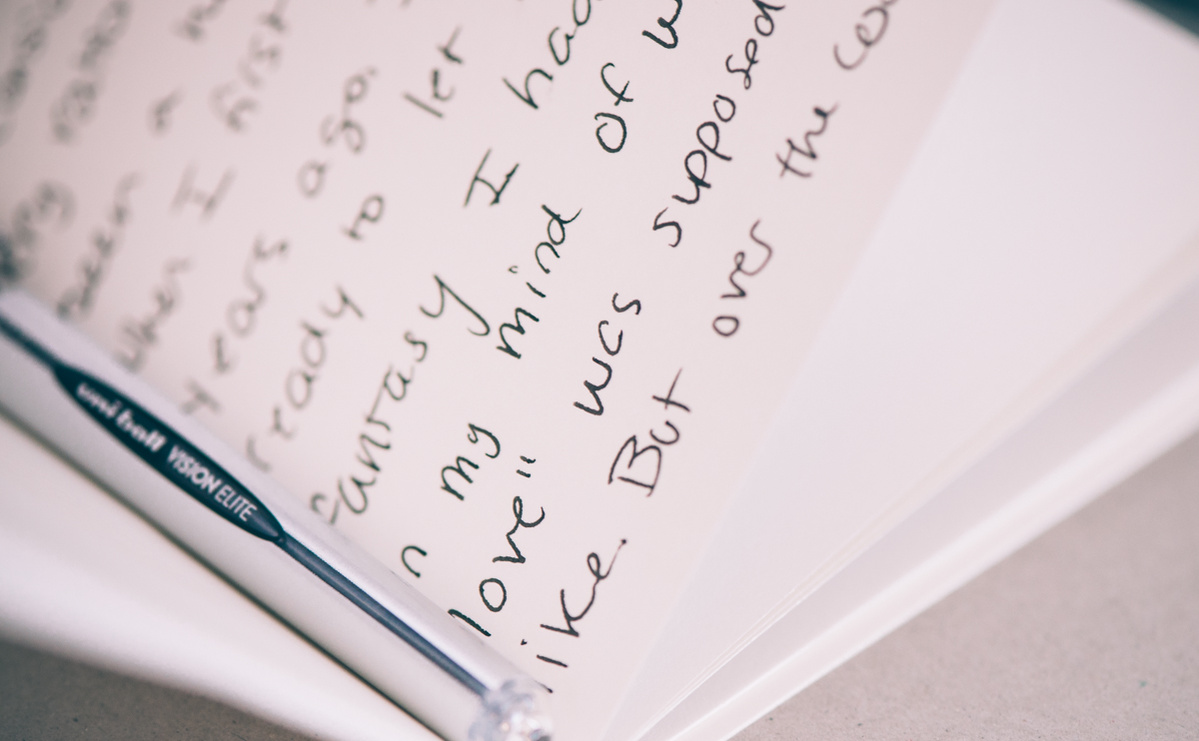 been a
when I first
years ago.
ready to let
fantasy I had
n my mind of w
love" was supposed
ike. But over the cou
uni-ball VISION ELITE